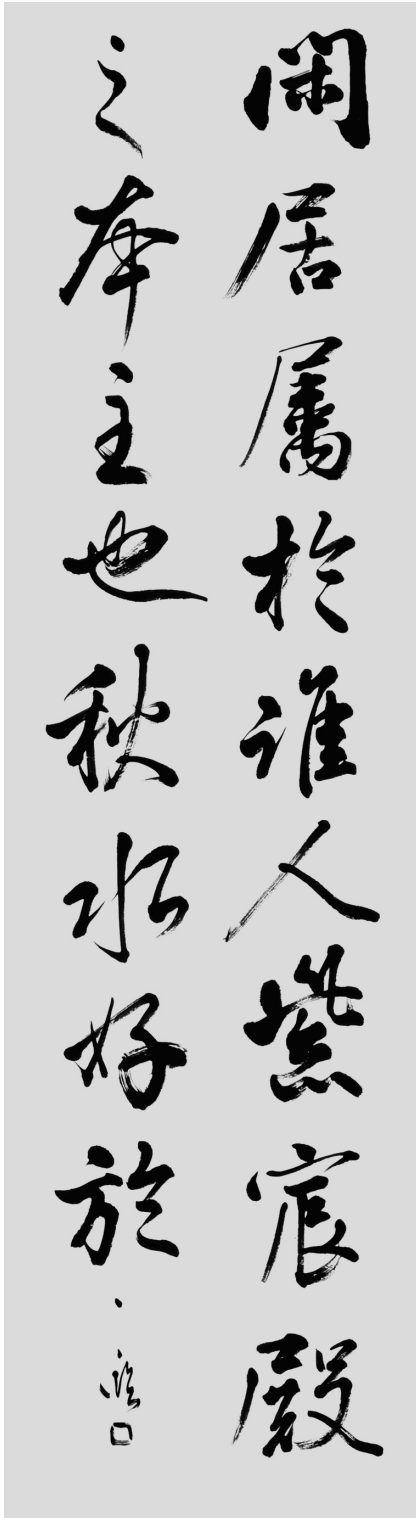 閑居属於誰人紫宸殿
之本主也秋水好於